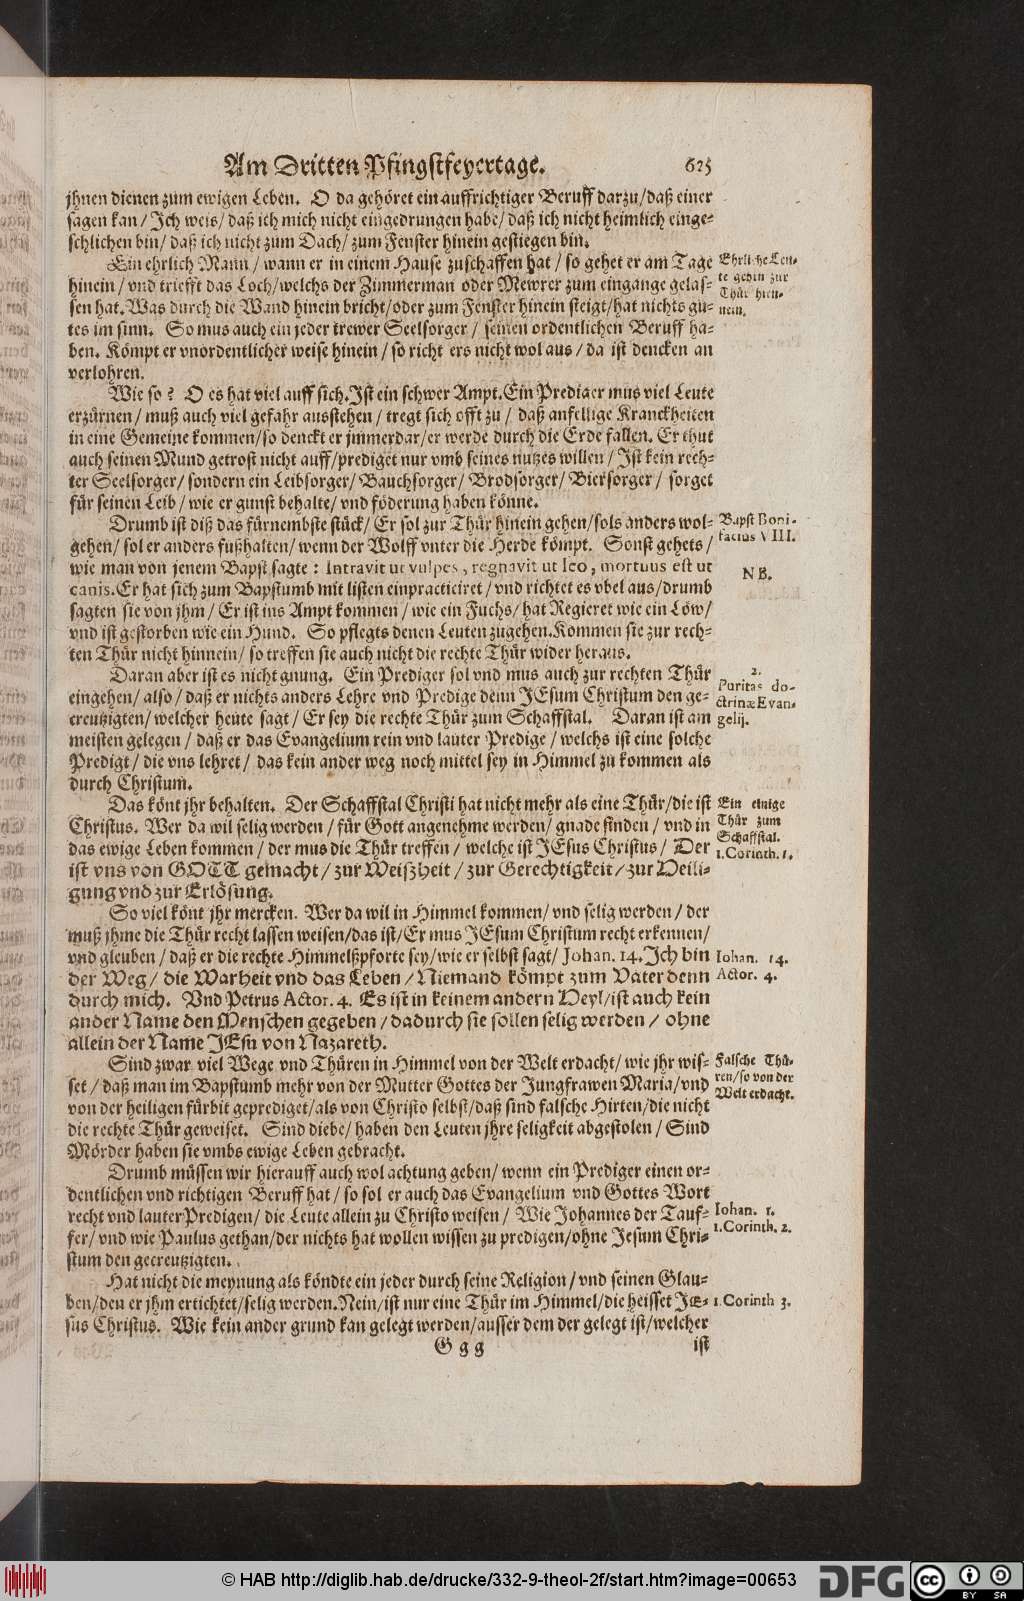 Am Dritten Pfingstfeyertage. 625
jhnen dienen zum ewigen Leben. O da gehöret ein auffrichtiger Beruff darzu/daß einer
sagen kan/ Jch weis/ daß ich mich nicht eingedrungen habe/ daß ich nicht heimlich einge-
schlichen bin/ daß ich nicht zum Dach/ zum Fenster hinein gestiegen bin.
Ein ehrlich Mann/ wann er in einem Hause zuschaffen hat/ so gehet er am Tage
hinein/ vnd triefft das Loch/welchs der Zimmerman oder Mewrer zum eingange gelas-
sen hat. Was durch die Wand hinein bricht/oder zum Fenster hinein steigt/hat nichts gu-
tes im sinn. So mus auch ein jeder trewer Seelsorger/ seinen ordentlichen Beruff ha-
ben. Kömpt er vnordentlicher weise hinein/ so richt ers nicht wol aus/ da ist dencken an
verlohren.
Ehrliche Leu-
te gehen zur
Thür hien-
nein.
Wie so? O es hat viel auff sich. Jst ein schwer Ampt. Ein Prediger mus viel Leute
erzürnen/ muß auch viel gefahr ausstehen/ tregt sich offt zu/ daß anfellige Kranckheiten
in eine Gemeine kommen/so denckt er jmmerdar/er werde durch die Erde fallen. Er thut
auch seinen Mund getrost nicht auff/prediget nur vmb seines nutzes willen/ Jst kein rech-
ter Seelsorger/ sondern ein Leibsorger/ Bauchsorger/ Brodsorger/ Biersorger/ sorget
für seinen Leib/ wie er gunst behalte/ vnd föderung haben könne.
Drumb ist diß das fürnembste stück/ Er sol zur Thür hinein gehen/sols anders wol-
gehen/ sol er anders fußhalten/ wenn der Wolff vnter die Herde kömpt. Sonst gehets/
wie man von jenem Bapst sagte: Intravit ut vulpes, regnavit ut leo, mortuus est ut
canis. Er hat sich zum Bapstumb mit listen einpracticiret/ vnd richtet es vbel aus/drumb
sagten sie von jhm/ Er ist ins Ampt kommen/ wie ein Fuchs/ hat Regieret wie ein Löw/
vnd ist gestorben wie ein Hund. So pflegts denen Leuten zugehen. Kommen sie zur rech-
ten Thür nicht hinnein/ so treffen sie auch nicht die rechte Thür wider heraus.
Bapst Boni-
facius VIII.
NB.
Daran aber ist es nicht gnung. Ein Prediger sol vnd mus auch zur rechten Thür
eingehen/ also/ daß er nichts anders Lehre vnd Predige denn JEsum Christum den ge-
creutzigten/ welcher heute sagt/ Er sey die rechte Thür zum Schaffstal. Daran ist am
meisten gelegen/ daß er das Evangelium rein vnd lauter Predige/ welchs ist eine solche
Predigt/ die vns lehret/ das kein ander weg noch mittel sey in Himmel zu kommen als
durch Christum.
2.
Puritas do-
ctrinæ Evan-
gelij.
Das könt jhr behalten. Der Schaffstal Christi hat nicht mehr als eine Thür/die ist
Christus. Wer da wil selig werden/ für Gott angenehme werden/ gnade finden/ vnd in
das ewige Leben kommen/ der mus die Thür treffen/ welche ist JEsus Christus/ Der
ist vns von GOTT gemacht/ zur Weißheit/ zur Gerechtigkeit/ zur Heili-
gung vnd zur Erlösung.
Ein einige
Thür zum
Schaffstal.
1. Corinth. 1.
So viel könt jhr mercken. Wer da wil in Himmel kommen/ vnd selig werden/ der
muß jhme die Thür recht lassen weisen/das ist/Er mus JEsum Christum recht erkennen/
vnd gleuben/ daß er die rechte Himmelßpforte sey/wie er selbst sagt/ Johan. 14. Jch bin
der Weg/ die Warheit vnd das Leben/ Niemand kömpt zum Vater denn
durch mich. Vnd Petrus Actor. 4. Es ist in keinem andern Heyl/ist auch kein
ander Name den Menschen gegeben/ dadurch sie sollen selig werden/ ohne
allein der Name JEsu von Nazareth.
Iohan. 14.
Actor. 4.
Sind zwar viel Wege vnd Thüren in Himmel von der Welt erdacht/ wie jhr wis-
set/ daß man im Bapstumb mehr von der Mutter Gottes der Jungfrawen Maria/vnd
von der heiligen fürbit geprediget/als von Christo selbst/daß sind falsche Hirten/die nicht
die rechte Thür geweiset. Sind diebe/ haben den Leuten jhre seligkeit abgestolen/ Sind
Mörder haben sie vmbs ewige Leben gebracht.
Falsche Thü-
ren/so von der
Welt erdacht.
Drumb müssen wir hierauff auch wol achtung geben/ wenn ein Prediger einen or-
dentlichen vnd richtigen Beruff hat/ so sol er auch das Evangelium vnd Gottes Wort
recht vnd lauter Predigen/ die Leute allein zu Christo weisen/ Wie Johannes der Tauf-
fer/ vnd wie Paulus gethan/der nichts hat wollen wissen zu predigen/ohne Jesum Chri-
stum den gecreutzigten.
Iohan. 1.
1. Corinth. 2.
Hat nicht die meynung als köndte ein jeder durch seine Religion/ vnd seinen Glau-
ben/den er jhm ertichtet/selig werden. Nein/ist nur eine Thür im Himmel/die heisset JE-
sus Christus. Wie kein ander grund kan gelegt werden/ausser dem der gelegt ist/welcher
1. Corinth 3.
G g g ist
© HAB http://diglib.hab.de/drucke/332-9-theol-2f/start.htm?image=00653
DFG
cc BY SA